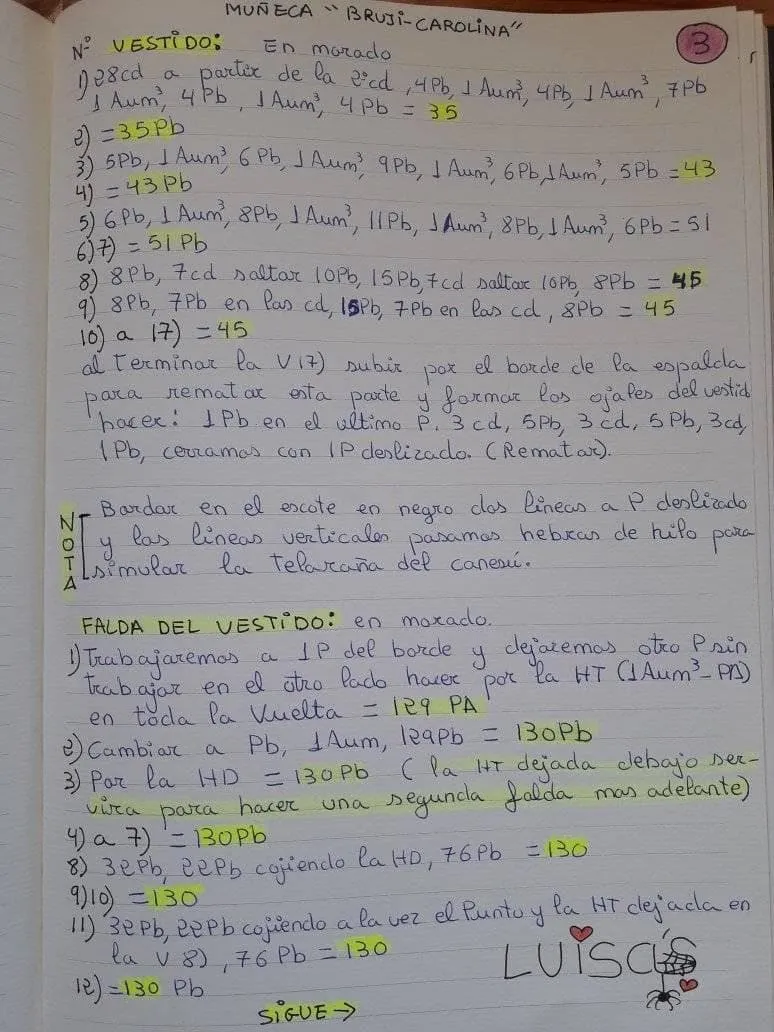 MUÑECA "BRUJI-CAROLINA"
3
Nº VESTIDO: En morado
1) 28cd a partir de la 2ªcd, 4Pb, 1Aum³, 4Pb, 1Aum³, 7Pb
1Aum³, 4Pb, 1Aum³, 4Pb = 35
2) = 35Pb
3) 5Pb, 1Aum³, 6Pb, 1Aum³, 9Pb, 1Aum³, 6Pb, 1Aum³, 5Pb = 43
4) = 43Pb
5) 6Pb, 1Aum³, 8Pb, 1Aum³, 11Pb, 1Aum³, 8Pb, 1Aum³, 6Pb = 51
6)7) = 51Pb
8) 8Pb, 7cd saltar 10Pb, 15Pb, 7cd saltar 10Pb, 8Pb = 45
9) 8Pb, 7Pb en las cd, 15Pb, 7Pb en las cd, 8Pb = 45
10) a 17) = 45
al terminar la V17) subir por el borde de la espalda
para rematar esta parte y formar los ojales del vestid
hacer: 1Pb en el ultimo P. 3cd, 5Pb, 3cd, 5Pb, 3cd,
1Pb, cerramos con 1P deslizado. (Rematar).
NOTA
- Bordar en el escote en negro dos lineas a P deslizado
y las lineas verticales pasamos hebras de hilo para
simular la telaraña del canesú.
FALDA DEL VESTIDO: en morado.
1) Trabajaremos a 1P del borde y dejaremos otro P sin
trabajar en el otro lado hacer por la HT (1Aum³-PA)
en toda la Vuelta = 129 PA
2) Cambiar a Pb, 1Aum, 129Pb = 130Pb
3) Por la HD = 130Pb (la HT dejada debajo ser-
vira para hacer una segunda falda mas adelante)
4) a 7) = 130Pb
8) 32Pb, 22Pb cojiendo la HD, 76Pb = 130
9)10) = 130
11) 32Pb, 22Pb cojiendo a la vez el Punto y la HT dejada en
la V 8), 76Pb = 130
12) = 130 Pb
LUISA'S
SIGUE →